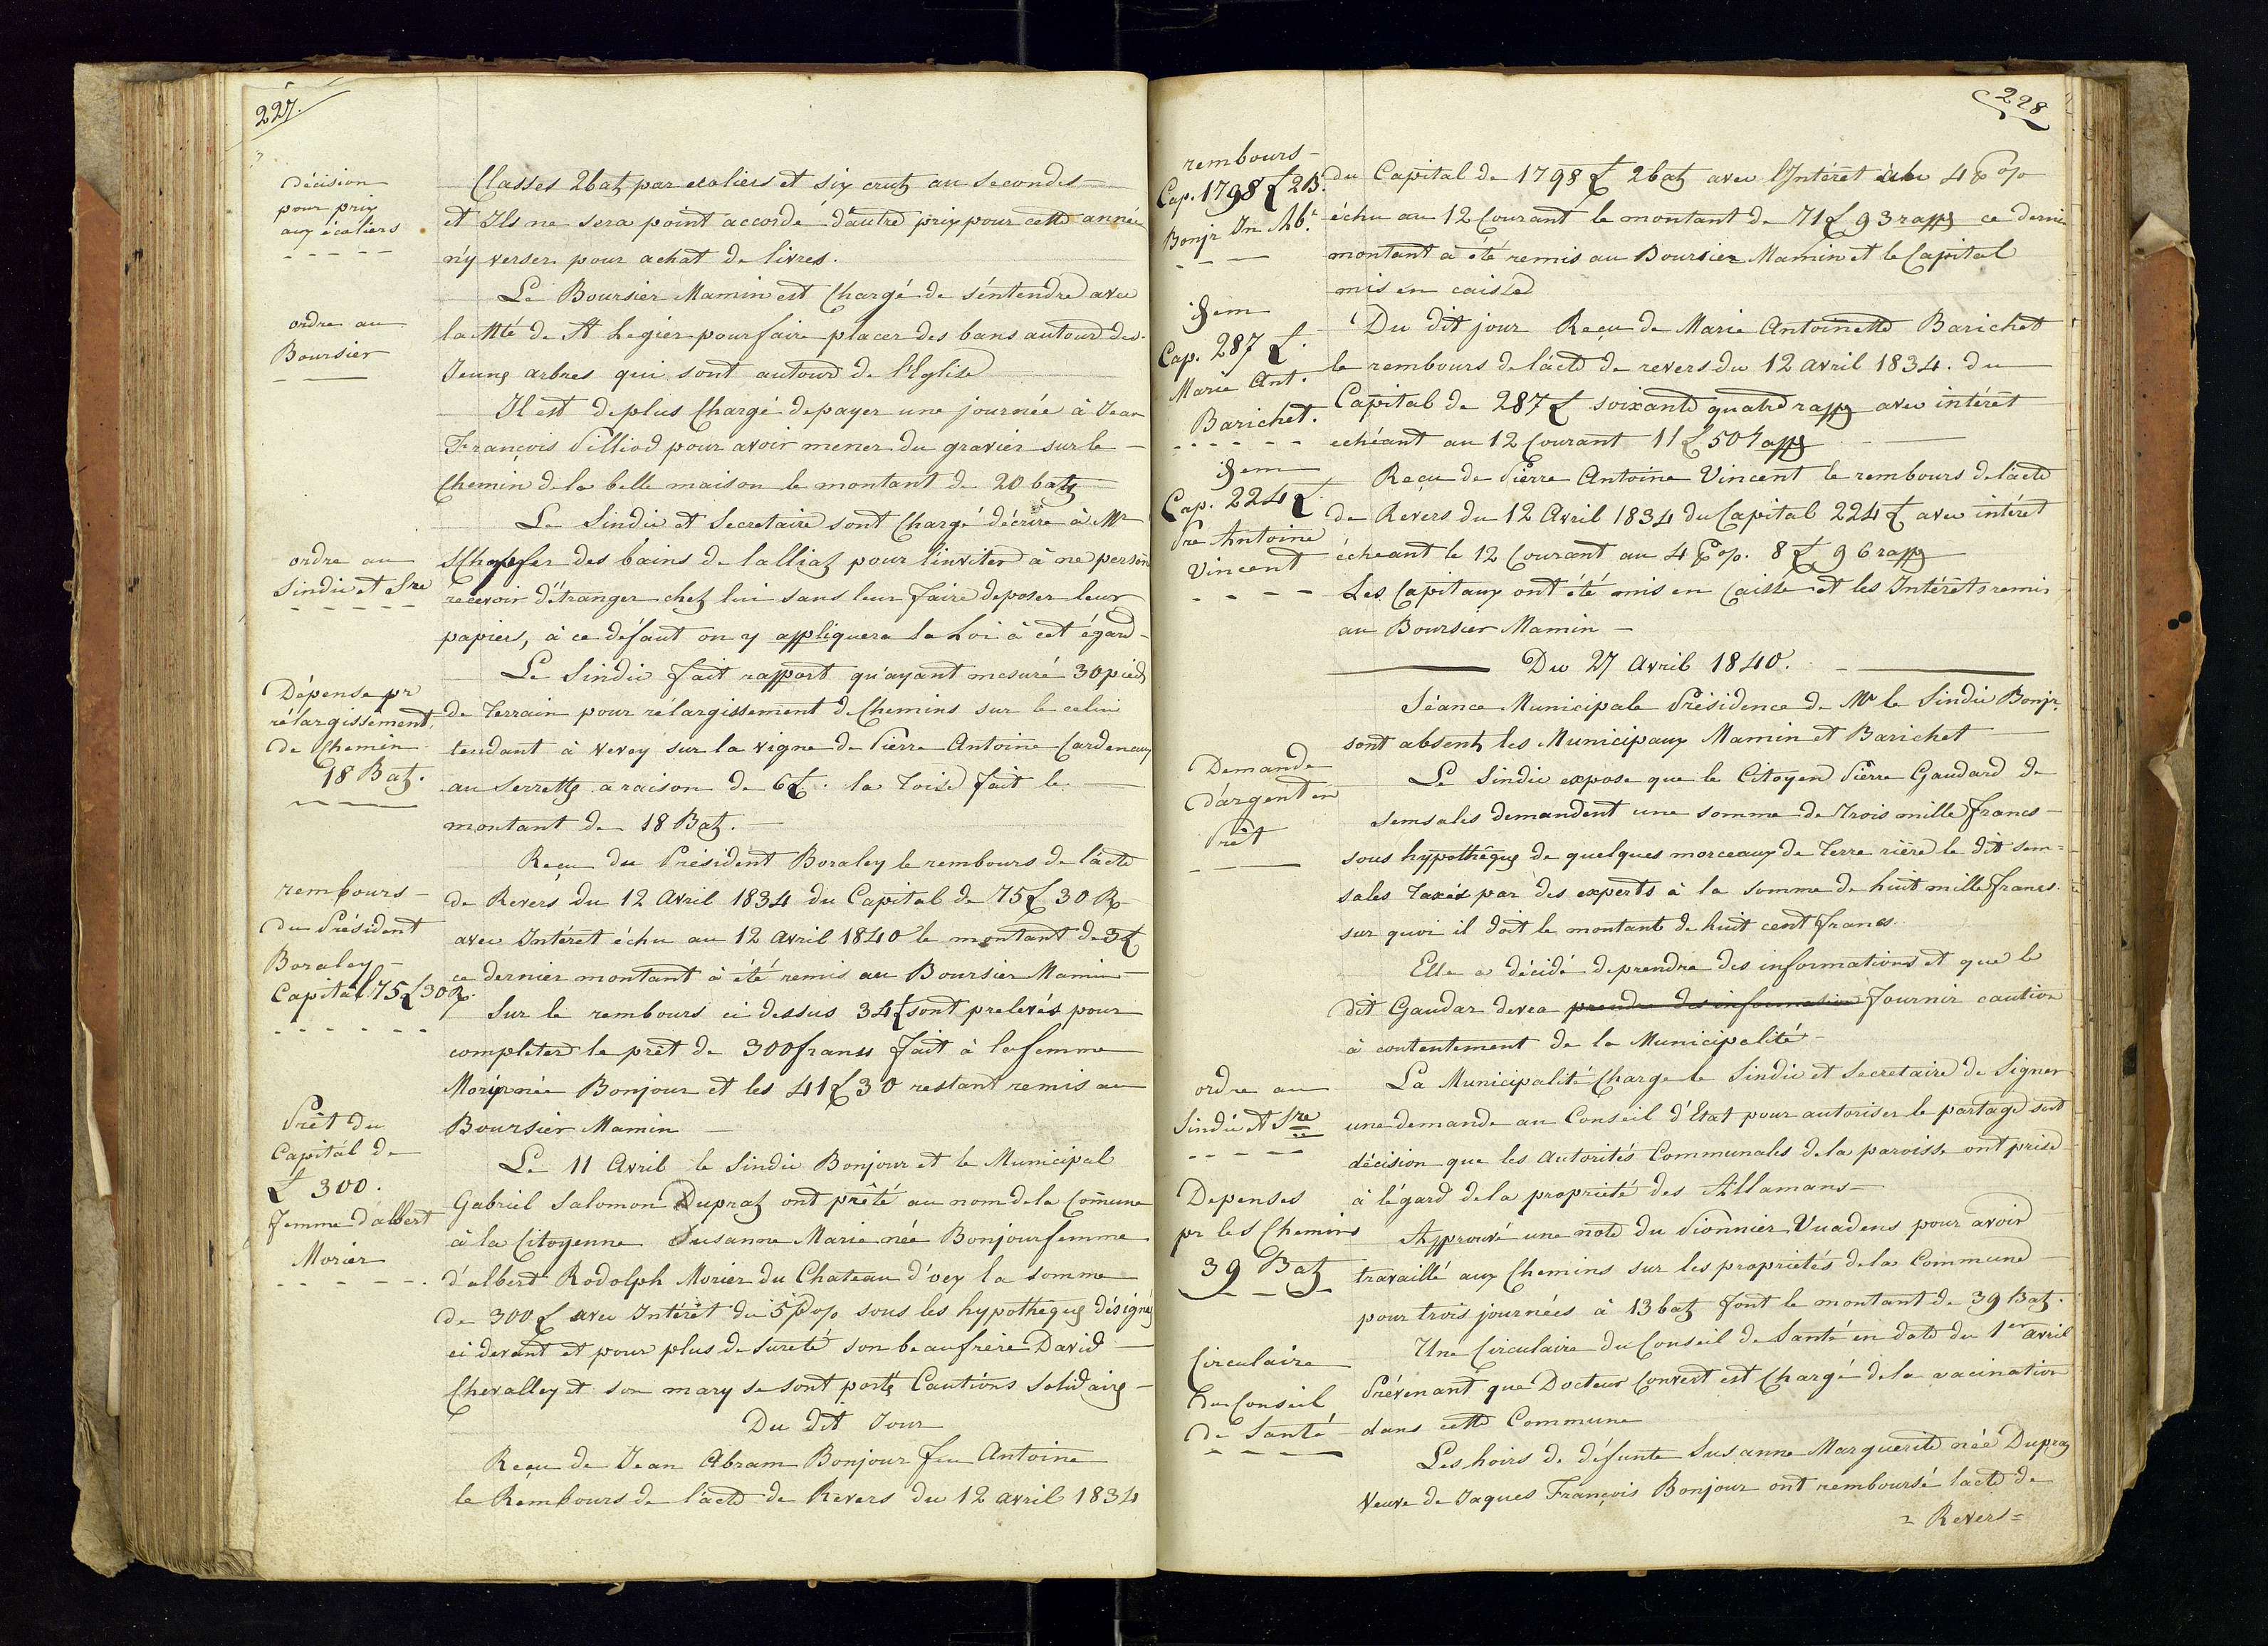 227.
décision
pour prix
aux écoliers
Classes 2 batz par ecoliers et six crutz au secondes
et Ils ne sera point accordé d'autre prix pour cette année
n'y verser pour achat de livres.
ordre au
Boursier
Le Boursier Mamin est Chargé de s'éntendre avec
la Mté de St Legier pour faire placer des bans autour des
Jeung arbres qui sont autour de l'Eglise
Il est de plus Chargé de payer une journée à Jean
François Pilliod pour avoir mener du gravier sur le
Chemin de la belle maison le montant de 20 batz
ordre au
Sindic et Sre
Le Sindic et Secretaire sont Chargé décrire à Mr
des bains de lalliaz pour l'inviter à ne person
recevoir d'étranger chez lui sans leur faire deposer leur
papier, à ce défaut on y appliquera la Loi à cet égard
Dépense pr
rélargissement
de Chemin
18 Batz.
Le Sindic fait rapport qu'ayant mesuré 30 pied
de Terrain pour rélargissement de Chemins sur le celui
tendant à Vevey sur la vigne de Pierre Antoine Cardenaux
au Serrettz a raison de 6 £. la Toise fait le
montant de 18 Batz.
rembours
du Président
Boraley
Capital 75 £ 30 R.
Reçu du Président Boraley le rembours de l'acte
de Revers du 12 Avril 1834 du Capital de 75 £ 30 R
avec Intéret échu au 12 avril 1840 le montant de 3 £
ce dernier montant à été remis au Boursier Mamin
Sur le rembours ci dessus 34 £ sont prelevés pour
completer le prêt de 300 francs fait à la femme
Morier née Bonjour et les 41 £ 30 restant remis au
Boursier Mamin
Prêt du
Capital de
£ 300.
femme d'albert
Morier
Le 11 Avril le Sindic Bonjour et le Municipal
Gabriel Salomon Dupraz ont prêté au nom de la Comune
à la Citoyenne Susanne Marie née Bonjour femme
d'albert Rodolph Morier du Chateau d'oex la somme
de 300 £ avec Intérêt du 5 P % sous les hypothèques désignés
ci devant et pour plus de sureté son beaufrère David
Chevalley et son mary se sont portz Cautions Solidaire
Du dit Jour
Reçu de Jean Abram Bonjour feu Antoine
le Rembours de l'acte de Revers du 12 avril 1834
228
rembours
Cap. 1798 £ 2 B.
Bonjr Jn Abr.
du Capital de 1798 £ 2 batz avec l'Intérêt du 4 P %
échu au 12 Courant le montant de 71 £ 93 rapp ce dernie
montant a été remis au Boursier Mamin et le Capital
mis en caisse
idem
Cap. 287 £.
Marie Ant.
Barichet.
Du dit jour Reçu de Marie Antoinette Barichet
le rembours de l'acte de revers du 12 avril 1834. du
Capital de 287 £ soixante quatre rapp avec intérêt
echéant au 12 Courant 11 £ 50 rapp
idem
Cap. 224 £.
Pre Antoine
Vincent
Reçu de Pierre Antoine Vincent le rembours de l'acte
de Revers du 12 Avril 1834 du Capital 224 £ avec intéret
écheant le 12 Courant au 4 P %. 8 £ 96 rapp
Les Capitaux ont été mis en Caisse et les Intérêts remis
au Boursier Mamin
Du 27 Avril 1840.
Séance Municipale Présidence de Mr le Sindic Bonjr
sont absentz les Municipaux Mamin et Barichet
Demande
d'argent en
Prêt
Le Sindic expose que le Citoyen Pierre Gaudard de
Semsales demandent une somme de Trois mille francs
sous hypothèque de quelques morceaux de Terre rière le dit Sem=
sales Taxés par des experts à la somme de huit mille francs.
sur quoi il doit le montant de huit cent francs.
Elle a décidé de prendre des informations et que le
dit Gaudar devra prendre des information fournir caution
à contentement de la Municipalité
ordre au
Sindic et Sre
La Municipalité Charge le Sindic et Secretaire de Signer
une demande au Conseil d'Etat pour autoriser le partage soit
décision que les Autorités Communales de la paroisse ont prise
à légard de la propriété des Allamans
Depenses
pr les Chemins
39 Batz
Approuvé une note du Pionnier Vuadens pour avoir
travaillé aux Chemins sur les propriétés de la Commune
pour trois journées à 13 batz font le montant de 39 Batz.
Circulaire
du Conseil
de Santé
Une Circulaire du Conseil de Santé en date du 1er avril
Prévenant que Docteur Convert est Chargé de la vacination
dans cette Commune
Les hoirs de défunte Susanne Marguerite née Dupraz
Veuve de Jaques François Bonjour ont remboursé l'acte de
= Revers =